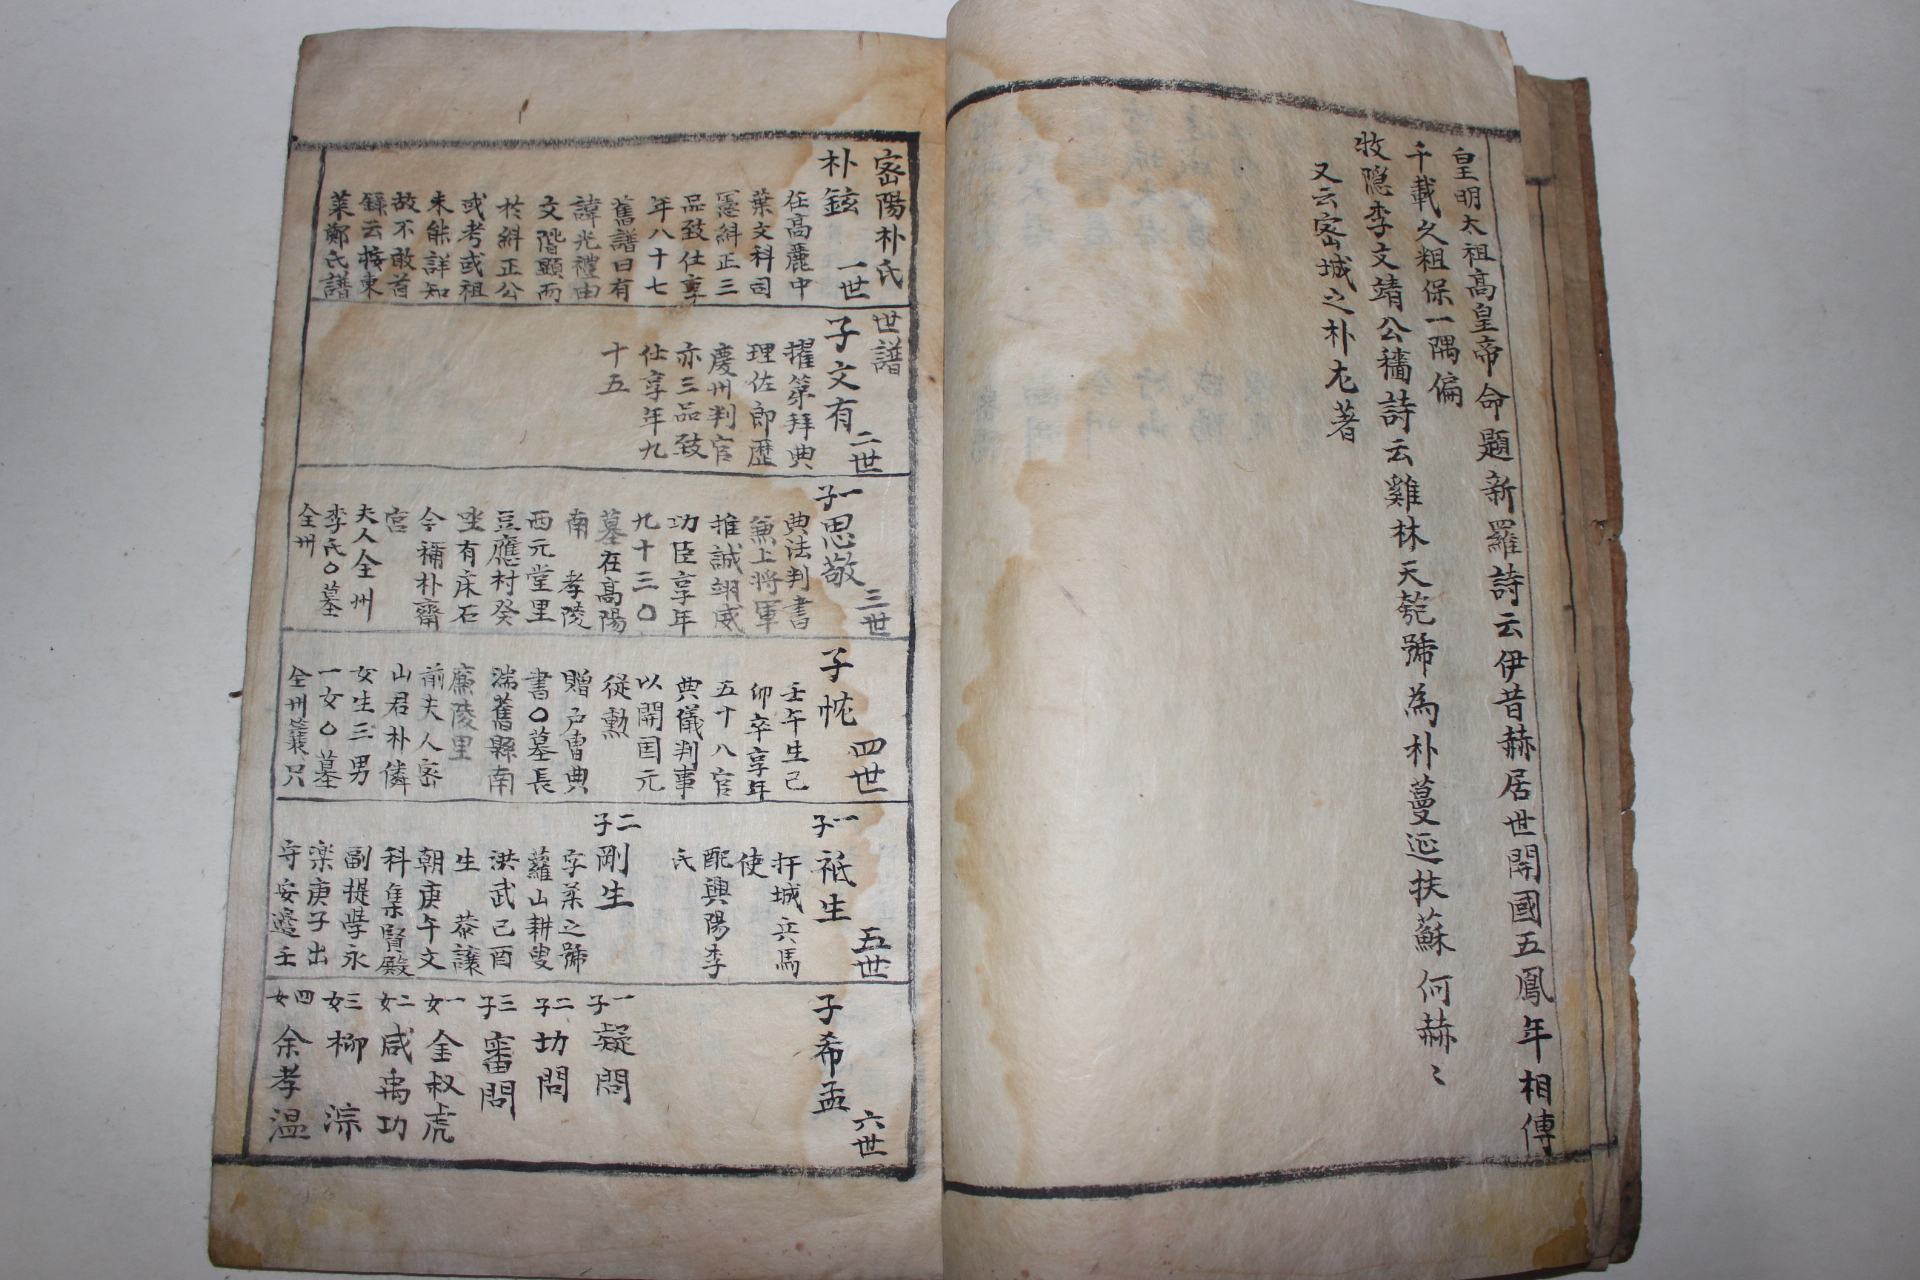 皇明太祖高皇帝命題新羅詩云伊昔赫居世開國五鳳年相傳
千載久粗保一隅偏
牧隱李文靖公穡詩云雞林天䓟號為朴蔓延扶蘇何赫〻
又云密城之朴尤著
密陽朴氏
世譜
朴鉉
一世
在高麗中
葉文科司
憲糾正三
品致仕享
年八十七
舊譜曰有
諱光禮由
文階顯而
於糾正公
或考或祖
未能詳知
故不敢首
錄云按東
萊鄭氏譜
子文有
二世
擢第拜典
理佐郎歷
慶州判官
亦三品致
仕享年九
十五
一子思敬
三世
典法判書
兼上將軍
推誠翊威
功臣享年
九十三〇
墓在高陽
南 孝陵
西元堂里
豆應村癸
坐有床石
今補朴齋
宮
夫人全州
李氏〇墓
全州
子忱
四世
壬午生己
卯卒享年
五十八官
典儀判事
以開国元
從勲
贈戶曹典
書〇墓長
湍舊縣南
廉陵里
前夫人密
山君朴憐
女生三男
一女〇墓
全州簑只
一子祗生
五世
扞城兵馬
使
配興陽李
氏
二子剛生
字柔之號
蘿山耕叟
洪武己酉
生 恭讓
朝庚午文
科集賢殿
副提學永
楽庚子出
守安邊壬
子希孟
六世
一子凝問
二子切問
三子審問
一女金叔虎
二女咸禹功
三女柳淙
四女余孝温